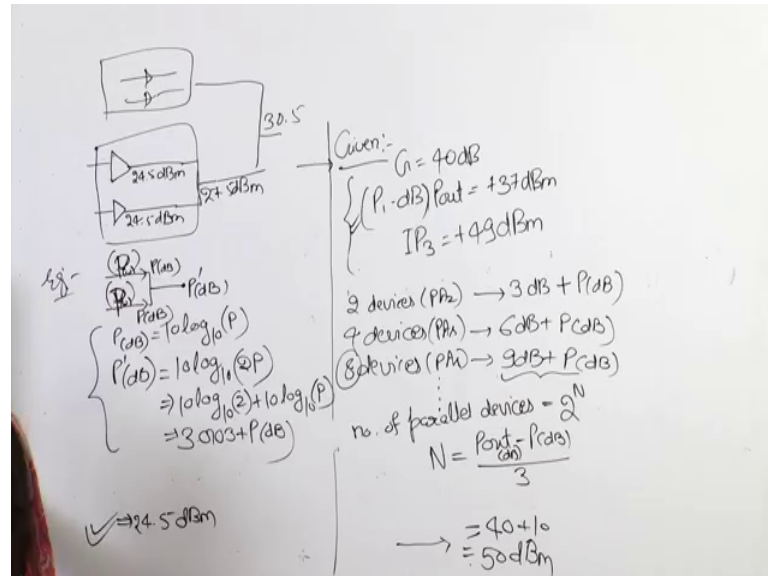 30.5
24.5dBm
27.5dBm
24.5dBm
Eg:-
P(dB)
P'(dB)
P(dB)
P(dB) = 10log10(P)
P'(dB) = 10log10(2P)
⇒ 10log10(2)+10log10(P)
⇒ 3.0103+P(dB)
✓⇒24.5dBm
Given:-
G = 40dB
(P1-dB) Pout = +37dBm
IP3 = +49dBm
2 devices(PAs) → 3dB + P(dB)
4 devices(PAs) → 6dB + P(dB)
8 devices(PAs) → 9dB + P(dB)
no. of parallel devices = 2^N
N = Pout(dB) - P(dB) / 3
= 40+10
= 50dBm